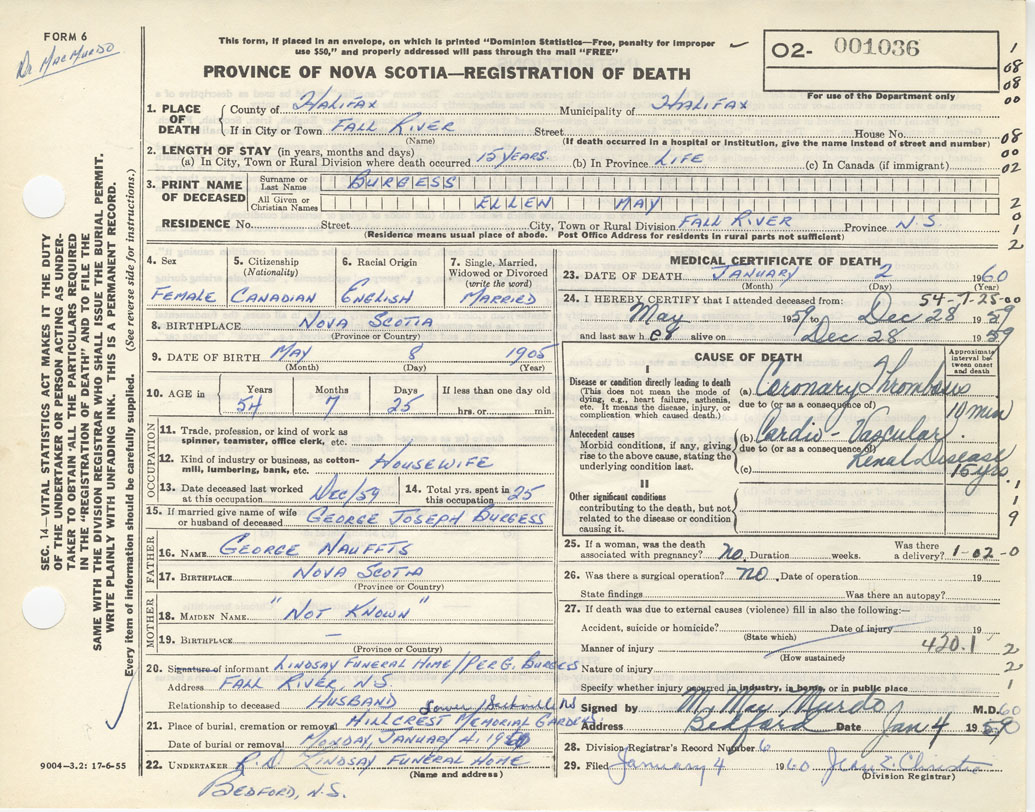 FORM 6
Dr MacMurdo
This form, if placed in an envelope, on which is printed "Dominion Statistics—Free, penalty for improper
use $50," and properly addressed will pass through the mail "FREE"
PROVINCE OF NOVA SCOTIA—REGISTRATION OF DEATH
02- 001036
For use of the Department only
1. PLACE OF DEATH County of HALIFAX Municipality of HALIFAX
If in City or Town FALL RIVER Street House No.
(Name) (If death occurred in a hospital or institution, give the name instead of street and number)
2. LENGTH OF STAY (in years, months and days)
(a) In City, Town or Rural Division where death occurred 15 YEARS. (b) In Province LIFE (c) In Canada (if immigrant)
3. PRINT NAME OF DECEASED Surname or Last Name BURGESS
All Given or Christian Names ELLEN MAY
RESIDENCE No. Street City, Town or Rural Division FALL RIVER Province N.S.
(Residence means usual place of abode. Post Office Address for residents in rural parts not sufficient)
1
08
08
00
08
00
02
2
0
1
2
SEC. 14—VITAL STATISTICS ACT MAKES IT THE DUTY
OF THE UNDERTAKER OR PERSON ACTING AS UNDER-
TAKER TO OBTAIN "ALL THE PARTICULARS REQUIRED
IN THE "REGISTRATION OF DEATH" AND TO FILE THE
SAME WITH THE DIVISION REGISTRAR WHO SHALL ISSUE THE BURIAL PERMIT.
WRITE PLAINLY WITH UNFADING INK. THIS IS A PERMANENT RECORD.
Every item of information should be carefully supplied. (See reverse side for instructions.)
4. Sex
FEMALE
5. Citizenship
(Nationality)
CANADIAN
6. Racial Origin
ENGLISH
7. Single, Married,
Widowed or Divorced
(write the word)
MARRIED
8. BIRTHPLACE NOVA SCOTIA
(Province or Country)
9. DATE OF BIRTH MAY 8 1905
(Month) (Day) (Year)
10. AGE in Years Months Days If less than one day old
54 7 25 hrs. or min.
OCCUPATION
11. Trade, profession, or kind of work as
spinner, teamster, office clerk, etc.
12. Kind of industry or business, as cotton-
mill, lumbering, bank, etc. HOUSEWIFE
13. Date deceased last worked
at this occupation DEC/59
14. Total yrs. spent in
this occupation 25
15. If married give name of wife
or husband of deceased GEORGE JOSEPH BURGESS
FATHER
16. NAME GEORGE NAUFFTS
17. BIRTHPLACE NOVA SCOTIA
(Province or Country)
MOTHER
18. MAIDEN NAME "NOT KNOWN"
19. BIRTHPLACE —
(Province or Country)
20. Signature of informant LINDSAY FUNERAL HOME/PER G. BURGESS
Address FALL RIVER, N.S.
Relationship to deceased HUSBAND
Lower Sackville NS
21. Place of burial, cremation or removal HILLCREST MEMORIAL GARDENS,
Date of burial or removal MONDAY, JANUARY 4, 1960
22. UNDERTAKER R.D. LINDSAY FUNERAL HOME
(Name and address)
BEDFORD, N.S.
9004—3.2: 17-6-55
MEDICAL CERTIFICATE OF DEATH
23. DATE OF DEATH JANUARY 2 1960
(Month) (Day) (Year)
54-7-25-00
24. I HEREBY CERTIFY that I attended deceased from:
May 1959 to Dec 28 1959
and last saw her alive on Dec 28 1959
CAUSE OF DEATH
Approximate
interval be-
tween onset
and death
I
Disease or condition directly leading to death
(This does not mean the mode of
dying, e.g., heart failure, asthenia,
etc. It means the disease, injury, or
complication which caused death.)
(a) Coronary Thrombosis
due to (or as a consequence of)
10 min
Antecedent causes
Morbid conditions, if any, giving
rise to the above cause, stating the
underlying condition last.
(b) Cardio-Vascular
due to (or as a consequence of)
Renal Disease
(c)
15 yrs.
II
Other significant conditions
contributing to the death, but not
related to the disease or condition
causing it.
1
1
9
25. If a woman, was the death
associated with pregnancy? no. Duration weeks. Was there
a delivery? 1-02-0
26. Was there a surgical operation? no. Date of operation 19
State findings Was there an autopsy?
27. If death was due to external causes (violence) fill in also the following:—
Accident, suicide or homicide? Date of injury 19
(State which)
Manner of injury 420.1 2
(How sustained)
Nature of injury 2
Specify whether injury occurred in industry, in home, or in public place 1
Signed by M. Mac Murdo M.D. 60
Address Bedford Date Jan 4 1960
28. Division Registrar's Record Number 6
29. Filed January 4 1960 Jean E. Christie
(Division Registrar)